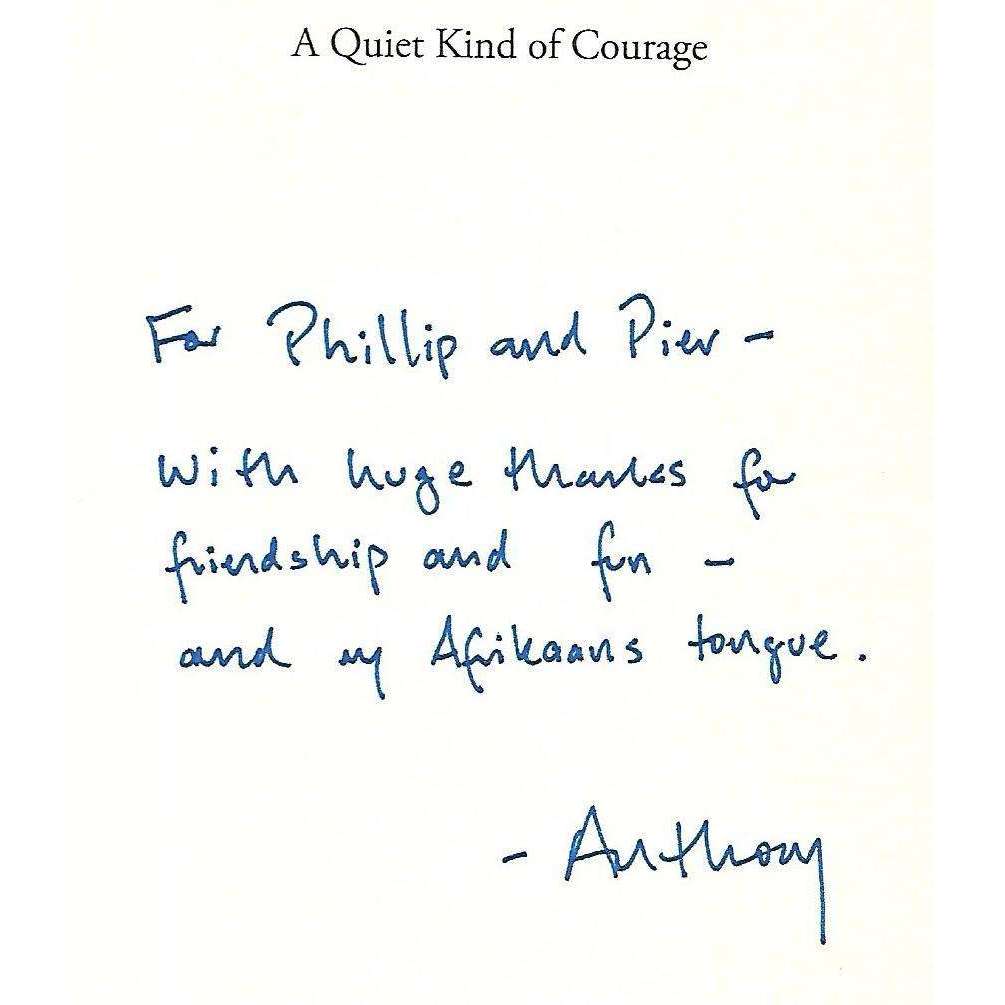 A Quiet Kind of Courage
For Phillip and Pier –
With huge thanks for
friendship and fun –
and my Afrikaans tongue.
– Anthony